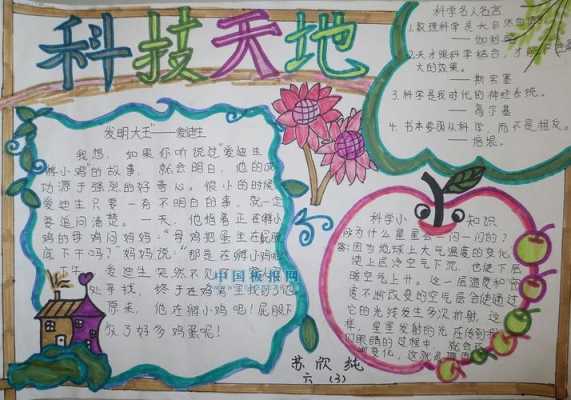 科技天地
发明大王"——爱迪生
我想,如果你听说过"爱迪生
孵小鸡"的故事,就会明白,他的成
功源于强烈的好奇心。很小的时候
爱迪生只要一有不明白的事,就一定
要追问清楚。一天,他指着正在孵小
鸡的母鸡问妈妈:"母鸡把蛋坐在屁股
底下干吗?"妈妈说:"那是在孵小鸡呢
爱迪生突然不见了
处寻找,终于在鸡窝里找到了他
原来,他在孵小鸡呢!屁股下
放了好多鸡蛋呢!
中国板报网
科学名人名言
1.数理科学是大自然的语言。
——伽利略
2.天才跟科学结合,才能
大的效果。
——斯宾塞
3.科学是我时代的神经系统。
——高尔基
4.书本要函从科学,而不是相反。
——培根。
科学小知识
为什么星星会一闪一闪的?
答:因为地球上大气温度的变化,
使上层冷空气下沉,也使下层
暖空气上升。这一层温度和密
度不断改变的空气层会使通过
它的光线发生多次折射,这
样,星星发射的光在传到
们眼睛的过程中,就会
变化,这就是
苏欣纯
六(3)